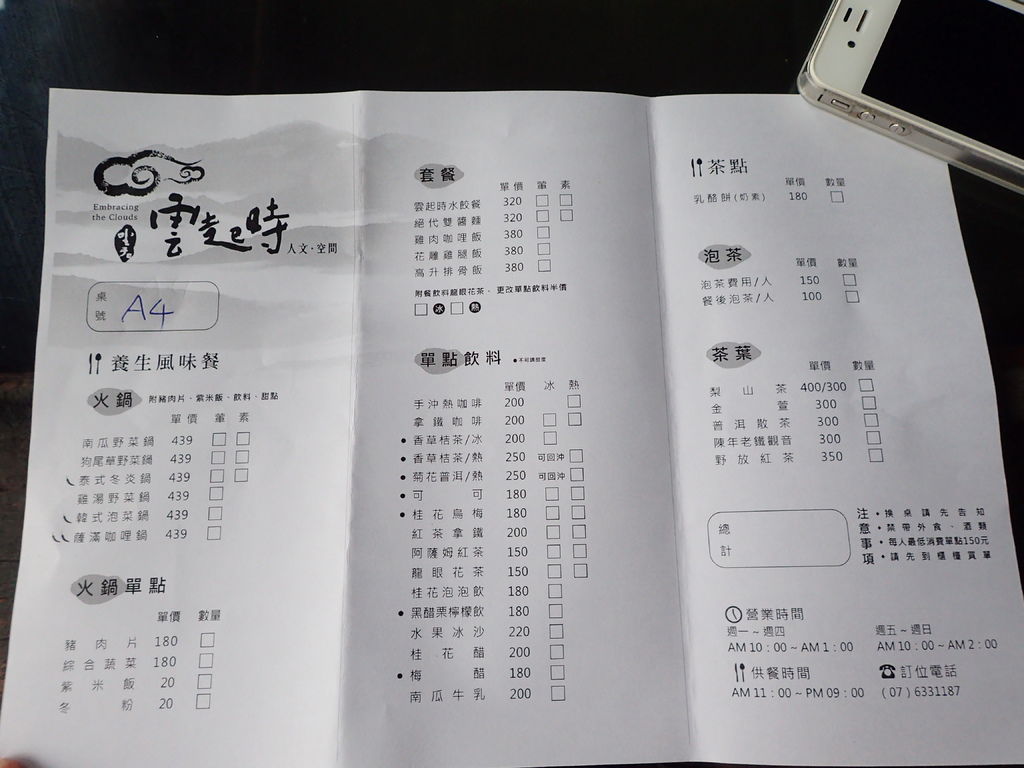 Embracing
the Clouds
雲起時
人文·空間
桌號 A4
養生風味餐
火鍋 附豬肉片、紫米飯、飲料、甜點
單價 葷 素
南瓜野菜鍋 439 □ □
狗尾草野菜鍋 439 □ □
泰式冬炎鍋 439 □ □
雞湯野菜鍋 439 □
韓式泡菜鍋 439 □
薩滿咖哩鍋 439 □
火鍋單點
單價 數量
豬肉片 180 □
綜合蔬菜 180 □
紫米飯 20 □
冬粉 20 □
套餐
單價 葷 素
雲起時水餃餐 320 □ □
絕代雙醬麵 320 □ □
雞肉咖哩飯 380 □
花雕雞腿飯 380 □
高升排骨飯 380 □
附餐飲料龍眼花茶、更改單點飲料半價
□ 冰 □ 熱
單點飲料 ●不可調甜度
單價 冰 熱
手沖熱咖啡 200 □
拿鐵咖啡 200 □ □
● 香草桔茶/冰 200 □
● 香草桔茶/熱 250 可回沖 □
● 菊花普洱/熱 250 可回沖 □
● 可可 180 □ □
● 桂花烏梅 180 □ □
紅茶拿鐵 200 □ □
阿薩姆紅茶 150 □ □
龍眼花茶 150 □ □
桂花泡泡飲 180 □
● 黑醋栗檸檬飲 180 □
水果冰沙 220 □
桂花醋 200 □
● 梅醋 180 □
南瓜牛乳 200 □
茶點
單價 數量
乳酪餅(奶素) 180 □
泡茶
單價 數量
泡茶費用/人 150 □
餐後泡茶/人 100 □
茶葉
單價 數量
梨山茶 400/300 □
金萱 300 □
普洱散茶 300 □
陳年老鐵觀音 300 □
野放紅茶 350 □
總計
注意事項
• 換桌請先告知
• 禁帶外食、酒類
• 每人最低消費單點150元
• 請先到櫃檯買單
營業時間
週一~週四 週五~週日
AM 10：00~AM 1：00 AM 10：00~AM 2：00
供餐時間 訂位電話
AM 11：00~PM 09：00 (07) 6331187